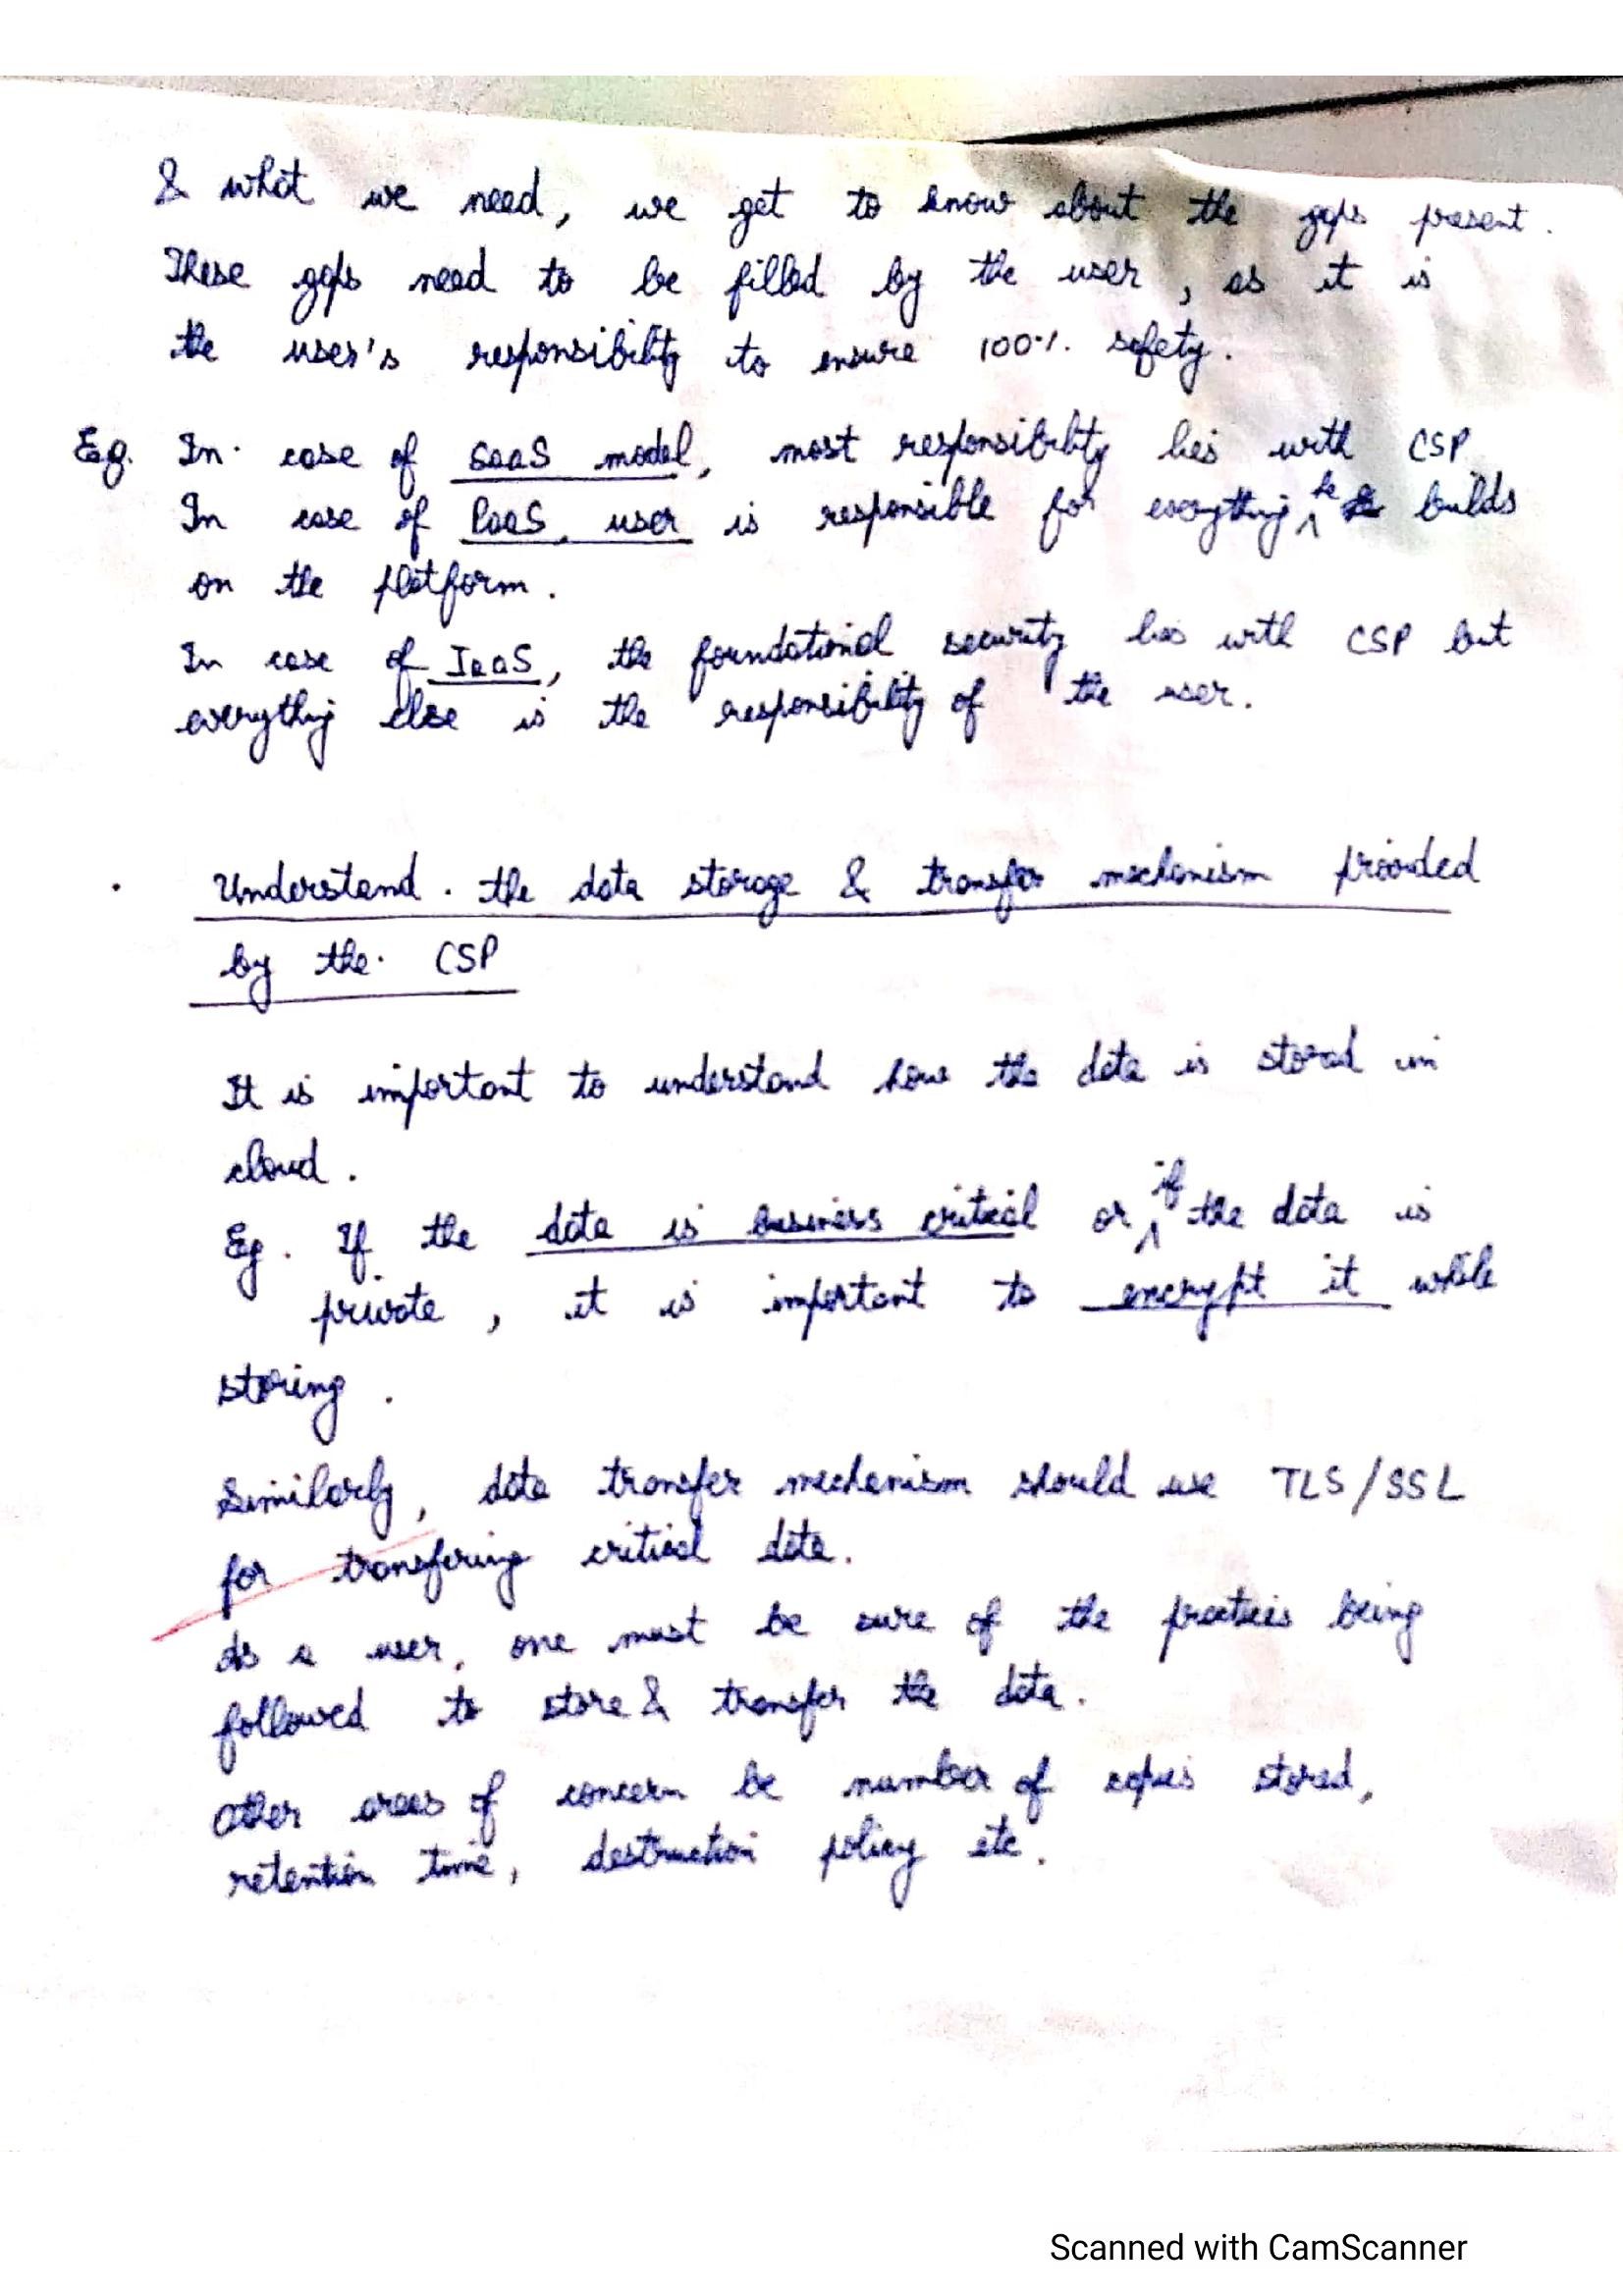 & what we need, we get to know about the gaps present.
These gaps need to be filled by the user, as it is
the user's responsibility to ensure 100% safety.
Eg. In case of SaaS model, most responsibility lies with CSP.
In case of PaaS, user is responsible for everything he builds
on the platform.
In case of IaaS, the foundational security lies with CSP but
everything else is the responsibility of the user.
. Understand the data storage & transfer mechanism provided
by the CSP
It is important to understand how the data is stored in
cloud.
Eg. If the data is business critical or if the data is
private, it is important to encrypt it while
storing.
Similarly, data transfer mechanism should use TLS/SSL
for transfering critical data.
As a user, one must be sure of the practices being
followed to store & transfer the data.
Other areas of concern be number of copies stored,
retention time, destruction policy etc.
Scanned with CamScanner